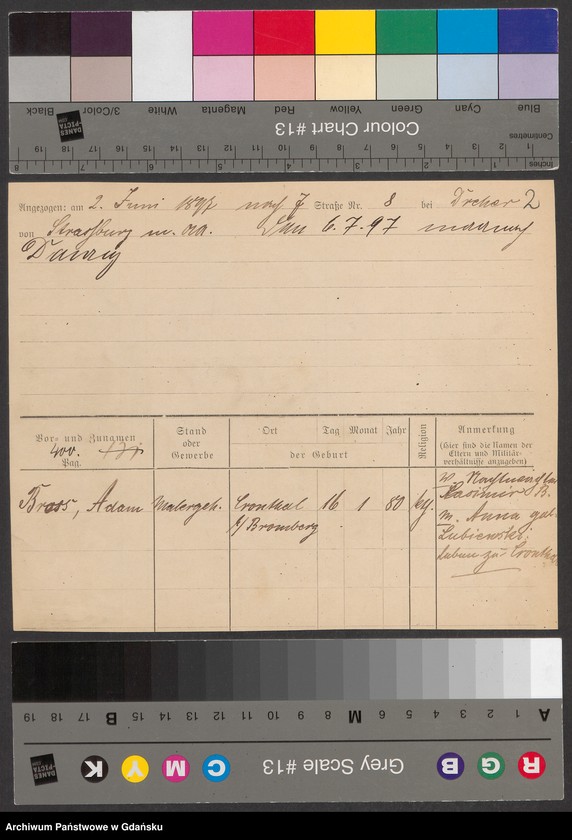 Blue Cyan Green Yellow Red Magenta White 3/Color Black
Colour Chart #13
Centimetres
DANES PICTA .COM
19 18 17 16 15 14 13 12 11 10 9 8 7 6 5 4 3 2 1
8 7 6 5 4 3 2 1 Inches
Angezogen: am 2. Juni 1897 nach J Straße Nr. 8 bei Dreher 2
von Strassburg 6.7.97
Danzig
Vor- und Zunamen Stand oder Gewerbe Ort Tag Monat Jahr der Geburt Religion Anmerkung
400. Pag.
(Hier sind die Namen der Eltern und Militärverhältnisse anzugeben)
Bross, Adam Malergeh. Cronthal 16 1 80
b/ Bromberg
Kasimir B.
m. Anna geb.
Lubiewski
leben zu Cronthal
19 18 17 B 15 14 13 12 11 10 9 8 M 6 5 4 3 2 1 A
R G B Grey Scale #13 C M Y K
DANES PICTA .COM
Archiwum Państwowe w Gdańsku